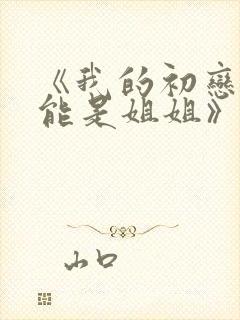 《我的初戀
能是姐姐》
山口